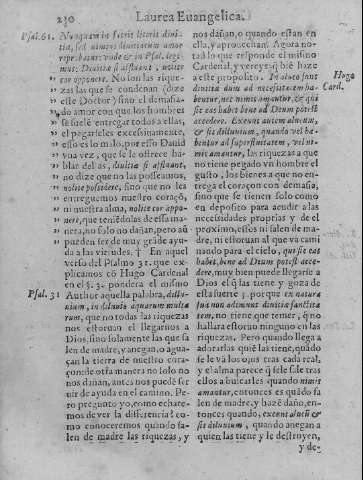 240 Laurea Euangelica.
Psal. 61. Nunquam in sacris literis diuitia,
sed nimius diuitiarum amor
repro bus ut vnde & in Psal. legimus.
Diuitiæ si affluant, nolite
cor apponere. No son las riquezas
las que se condenan (dize
este Doctor) sino el demasiado
amor con que los hombres
se suelẽ entregar todos a ellas,
el pegarseles excessiuamente,
esso es lo malo, por esso Dauid
vna vez, que se le ofrece hablar
dellas, diuitiæ si affluant,
no dize que no las posseamos,
nolite possidere, sino que no les
entreguemos nuestro coraçõ,
ni nuestra alma, nolite cor apponere,
que teniẽdolas de essa manera,
no solo no dañan, pero aũ
pueden ser de muy grãde ayuda
a las virtudes. † En aquel
verso del Psalmo 31. que explicamos
cõ Hugo Cardenal
en el §. 3. pondera el mismo
Psal. 31 Author aquella palabra, diluuium,
in diluuio aquarum multarum,
que no todas las riquezas
nos estoruan el llegarnos a
Dios, sino solamente las que salen
de madre, y anegan, o aguaçan
la tierra de nuestro coraçon:
de otra manera no solo no
nos dañan, antes nos puedẽ seruir
de ayuda en el camino. Pero
pregunto yo, como echaremos
de ver la diferencia? como
conoceremos quando salen
de madre las riquezas, y
nos dañan, o quando estan en
ella, y aprouechan? Agora notad
lo que responde el mismo
Cardenal, y vereys q̃ biẽ haze
Hugo Card. a este proposito. In aluo sunt
diuitiæ dum ad necessitatem habentur,
nec nimis amantur, & qui
sic eas habet bene ad Deum potest
accedere. Exeunt autem alueum,
& fit diluuium, quando vel habentur
ad superfluitatem, vel nimis
amantur, las riquezas a que
no tiene pegado vn hombre el
gusto, los bienes a que no entrega
el coraçon con demasia,
sino que se tienen solo como
en deposito para acudir a las
necessidades proprias y de el
proximo, estos ni salen de madre,
ni estoruan al que va caminando
para el cielo, qui sic eas
habet, bene ad Deum potest accedere,
muy bien puede llegarse a
Dios el q̃ las tiene y goza de
esta suerte; porque en natura
sua non adimunt diuitiæ sanctitatem,
no tiene que temer, q̃ no
hallara estoruo ninguno en las
riquezas. Pero quando llega a
adorarlas quiẽ las tiene, quãdo
se le và los ojos tras cada real,
y el alma parece q̃ se le sale tras
ellos a buscarles quando nimis
amantur, entonces es quãdo salen
de madre, y hazẽ daño, entonces
quando, exeunt alueũ &
fit diluuium, quando anegan a
quien las tiene y le destruyen,
y de-